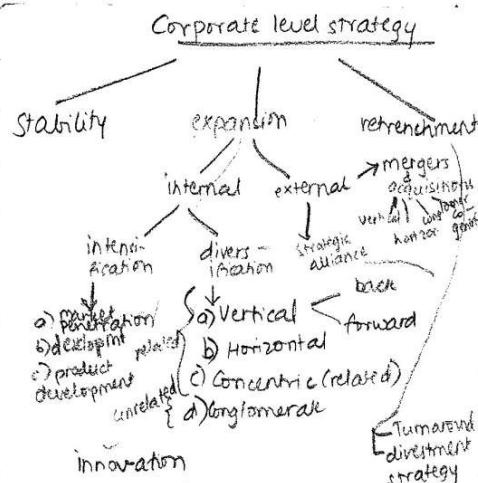 Corporate level strategy
stability
expansion
retrenchment
internal
external
mergers
&
acquisitions
vertical
horizon
co-
generic
intensi-
fication
divers-
ification
strategic
alliance
a) market
penetration
b) developmt
c) product
development
related
unrelated
a) Vertical
back
forward
b) Horizontal
c) Concentric (related)
d) Conglomerate
innovation
Turnaround
divestment
strategy